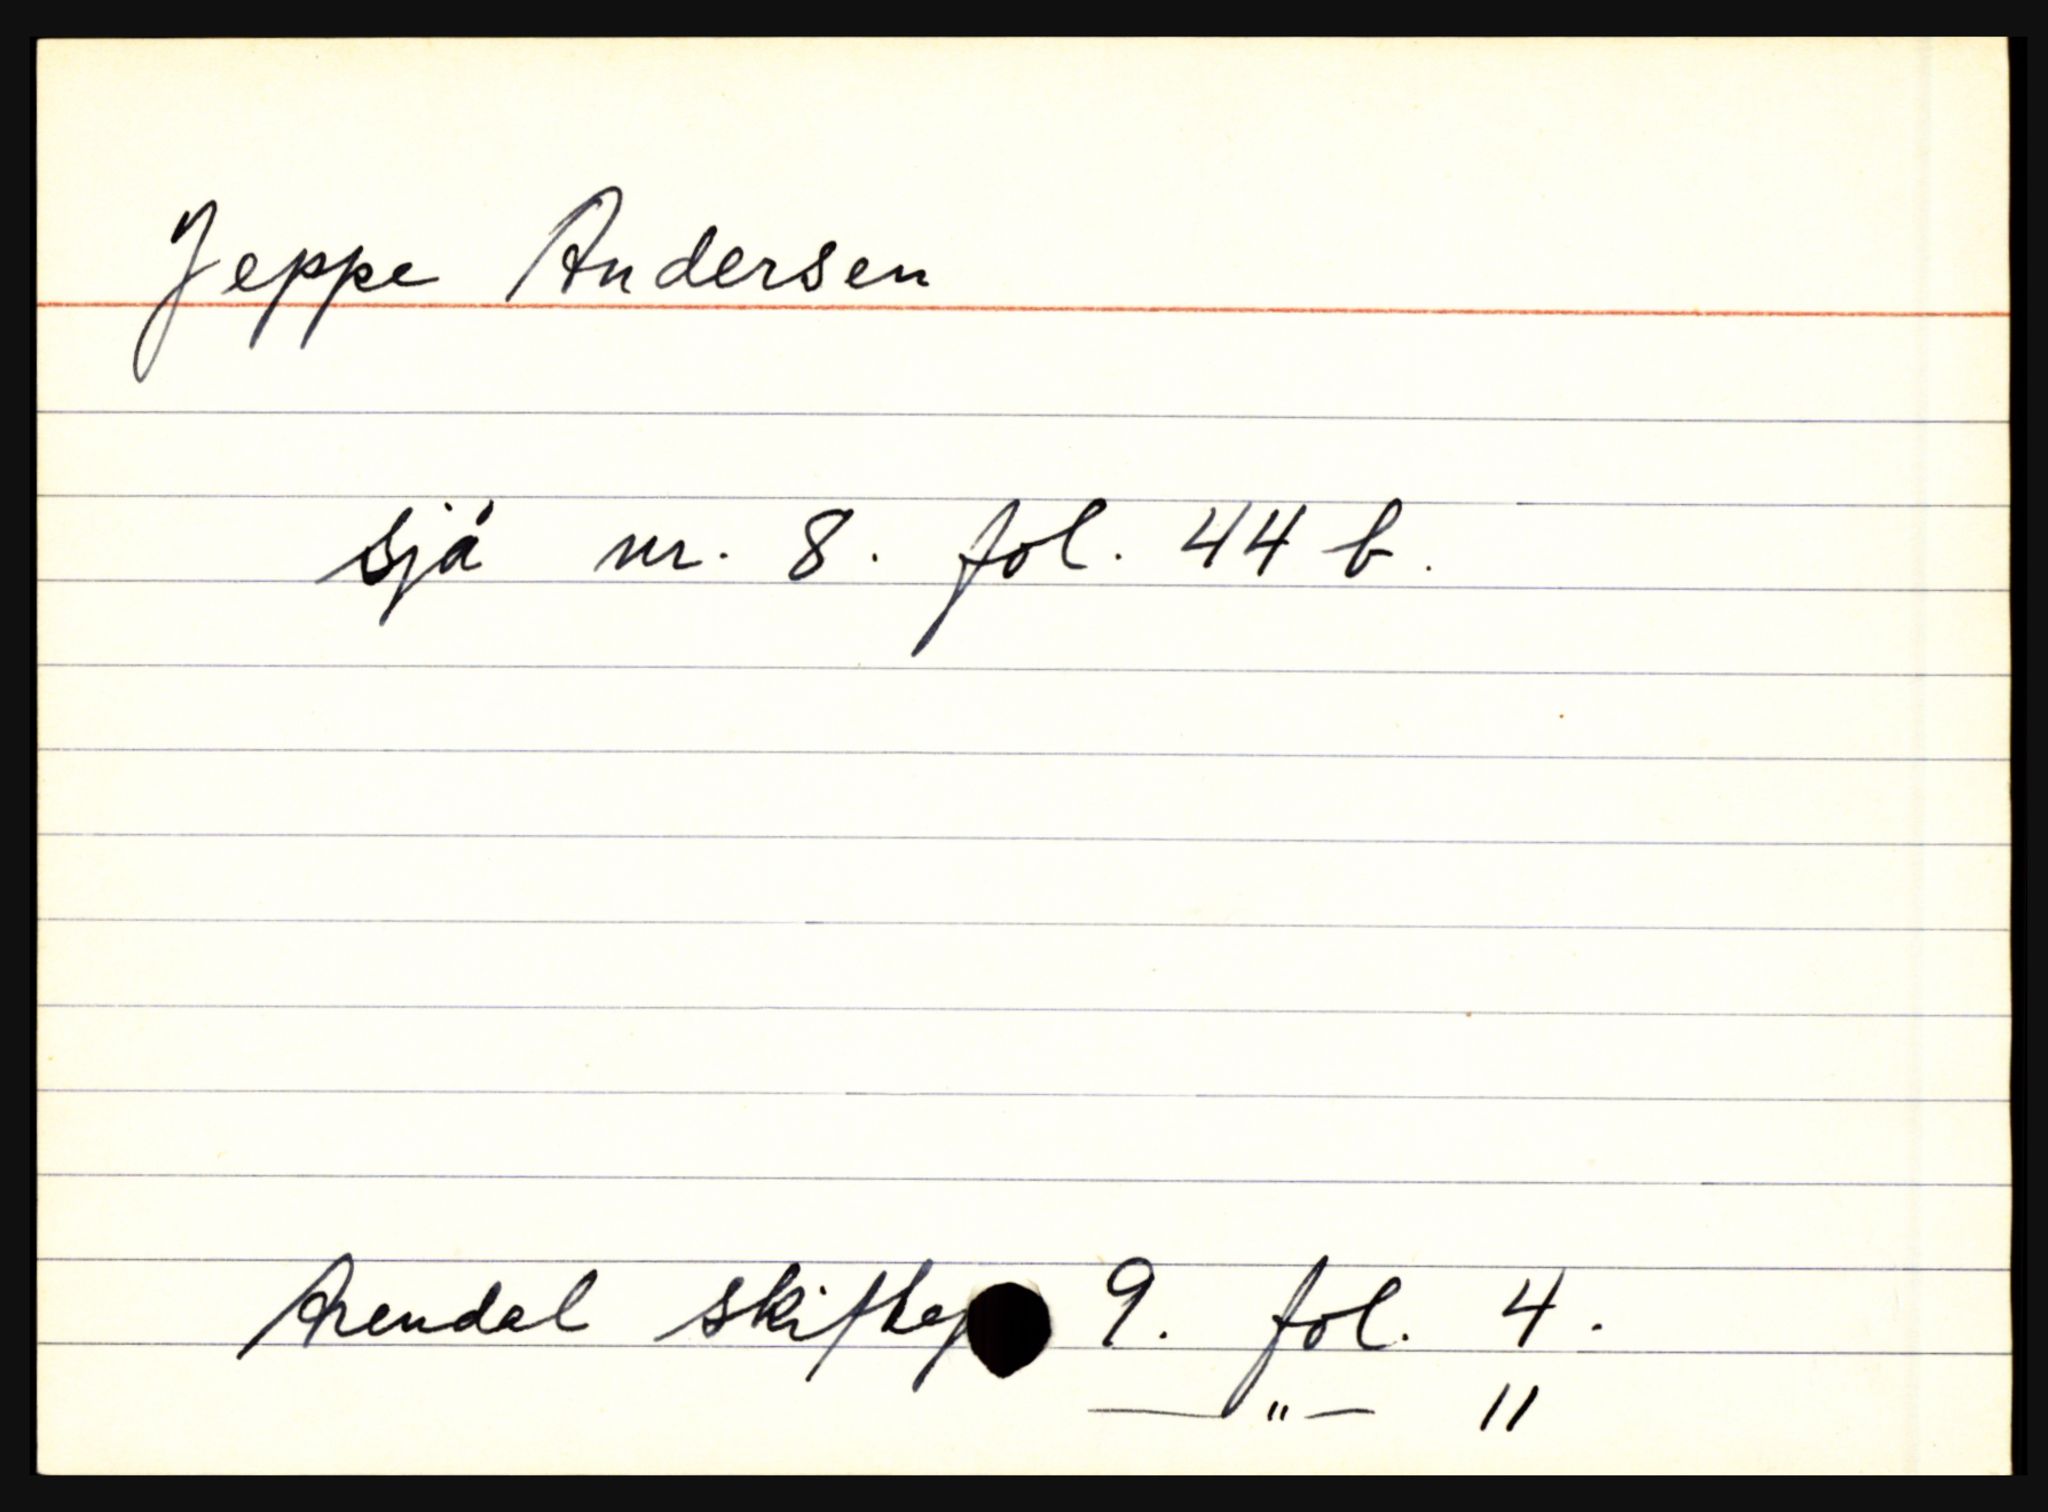 Jeppe Andersen
sjå nr. 8. fol. 44 b.
Arendal skiftep 9. fol. 4.
— " — 11